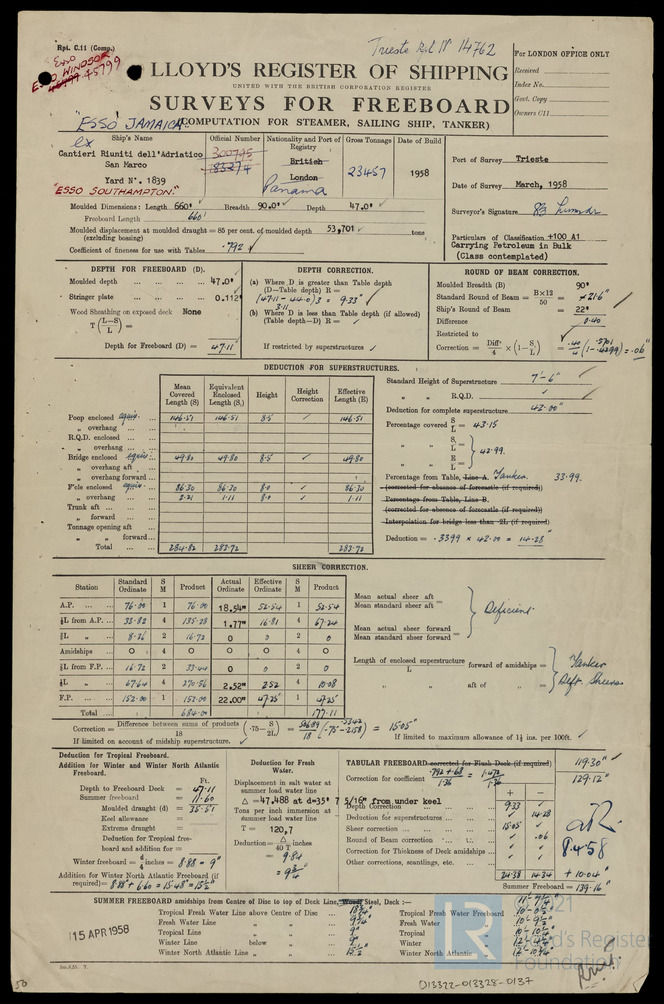 Rpt. C.11 (Comp.)
Trieste Rpt Nº 14762
Esso
ESSO WINDSOR
45799
For LONDON OFFICE ONLY
Received
Index No.
Govt. Copy
Owners C11
LLOYD'S REGISTER OF SHIPPING
UNITED WITH THE BRITISH CORPORATION REGISTER
SURVEYS FOR FREEBOARD
"ESSO JAMAICA"
(COMPUTATION FOR STEAMER, SAILING SHIP, TANKER)
ex
Ship's Name
Official Number
Nationality and Port of Registry
Gross Tonnage
Date of Build
Cantieri Riuniti dell'Adriatico
San Marco
Yard Nº. 1839
"ESSO SOUTHAMPTON."
300775
British
London
Panama
23457
1958
Port of Survey Trieste
Date of Survey March, 1958
Surveyor's Signature
Particulars of Classification +100 A1
Carrying Petroleum in Bulk
(Class contemplated)
Moulded Dimensions: Length 660' Breadth 90.0' Depth 47.0'
Freeboard Length 660'
Moulded displacement at moulded draught = 85 per cent. of moulded depth 53,701 tons
(excluding bossing)
Coefficient of fineness for use with Tables .792
DEPTH FOR FREEBOARD (D).
Moulded depth 47.0'
Stringer plate 0.112
Wood Sheathing on exposed deck None
T (L-S/L) =
Depth for Freeboard (D) = 47.11
DEPTH CORRECTION.
(a) Where D is greater than Table depth
(D-Table depth) R =
(47.11 - 44.0) 3 = 9.33"
3.11
(b) Where D is less than Table depth (if allowed)
(Table depth-D) R =
If restricted by superstructures
ROUND OF BEAM CORRECTION.
Moulded Breadth (B) 90'
Standard Round of Beam = B×12/50 = 21.6"
Ship's Round of Beam = 22"
Difference 0.40
Restricted to
Correction = Diff/4 × (1-S/L) = .40/4 (1-.4299) = .06"
.5701
DEDUCTION FOR SUPERSTRUCTURES.
Mean Covered Length (S)
Equivalent Enclosed Length (S₁)
Height
Height Correction
Effective Length (E)
Poop enclosed equiv. 146.51 146.51 8.5' 146.51
" overhang
R.Q.D. enclosed
" overhang
Bridge enclosed equiv. 49.80 49.80 8.5' 49.80
" overhang aft
" overhang forward
F'cle enclosed equiv. 86.30 86.30 8.0 86.30
" overhang 2.21 1.11 8.0 1.11
Trunk aft
" forward
Tonnage opening aft
" " forward
Total 284.82 283.72 283.72
Standard Height of Superstructure 7'-6"
" " R.Q.D.
Deduction for complete superstructure 42.00"
Percentage covered S/L = 43.15
" " S₁/L =
" " E/L =
42.99
Percentage from Table, Line A. Tanker 33.99
(corrected for absence of forecastle (if required))
Percentage from Table, Line B.
(corrected for absence of forecastle (if required))
Interpolation for bridge less than ·2L (if required)
Deduction = .3399 × 42.00 = 14.28"
SHEER CORRECTION.
Station
Standard Ordinate
S M
Product
Actual Ordinate
Effective Ordinate
S M
Product
A.P. 76.00 1 76.00 18.54" 52.54 1 52.54
⅙L from A.P. 33.82 4 135.28 1.77" 16.81 4 67.24
⅓L " 8.36 2 16.72 0 0 2 0
Amidships 0 4 0 0 0 4 0
⅓L from F.P. 16.72 2 33.44 0 0 2 0
⅙L " 67.64 4 270.56 2.52" 2.52 4 10.08
F.P. 152.00 1 152.00 22.00" 47.25 1 47.25
Total 684.00 177.11
Mean actual sheer aft =
Mean standard sheer aft
Mean actual sheer forward =
Mean standard sheer forward
Deficient.
Length of enclosed superstructure/L forward of amidships =
" " aft of " =
Tanker
Deft. Sheers
Correction = Difference between sums of products/18 (·75-S/2L) = 506.89/18 (.75-.2158) = 15.05"
.5342
If limited on account of midship superstructure.
If limited to maximum allowance of 1½ ins. per 100ft.
Deduction for Tropical Freeboard.
Addition for Winter and Winter North Atlantic Freeboard.
Ft.
Depth to Freeboard Deck = 47.11
Summer freeboard = 11.60
Moulded draught (d) = 35.51
Keel allowance =
Extreme draught =
Deduction for Tropical freeboard and addition for =
Winter freeboard = d/4 inches = 8.88 = 9"
Addition for Winter North Atlantic Freeboard (if required) = 8.88 + 6.60 = 15.48 = 15½"
Deduction for Fresh Water.
Displacement in salt water at summer load water line
Δ = 47,488 at d=35' 7 5/16" from under keel
Tons per inch immersion at summer load water line
T = 120,7
Deduction = Δ/40 T inches
= 9.84
= 9¾"
TABULAR FREEBOARD corrected for Flush Deck (if required)
119.30"
Correction for coefficient .792 + .68/1.36 = 1.472/1.36
129.12"
+ -
Depth Correction 9.33
Deduction for superstructures 14.28
Sheer correction 15.05
Round of Beam correction .06
Correction for Thickness of Deck amidships
Other corrections, scantlings, etc.
24.38 14.34 + 10.04"
Summer Freeboard = 139.16"
8.4.58
SUMMER FREEBOARD amidships from Centre of Disc to top of Deck Line, Wood Steel, Deck :—
Tropical Fresh Water Line above Centre of Disc 18¾"
Fresh Water Line " " 9¾"
Tropical Line " " 9"
Winter Line below " 9"
Winter North Atlantic Line " " 15½
Tropical Fresh Water Freeboard
Fresh Water "
Tropical "
Winter "
Winter North Atlantic "
15 APR 1958
5m.8.55. T.
50
LR
©2021
Lloyd's Register
Foundation
013322-013328-0137